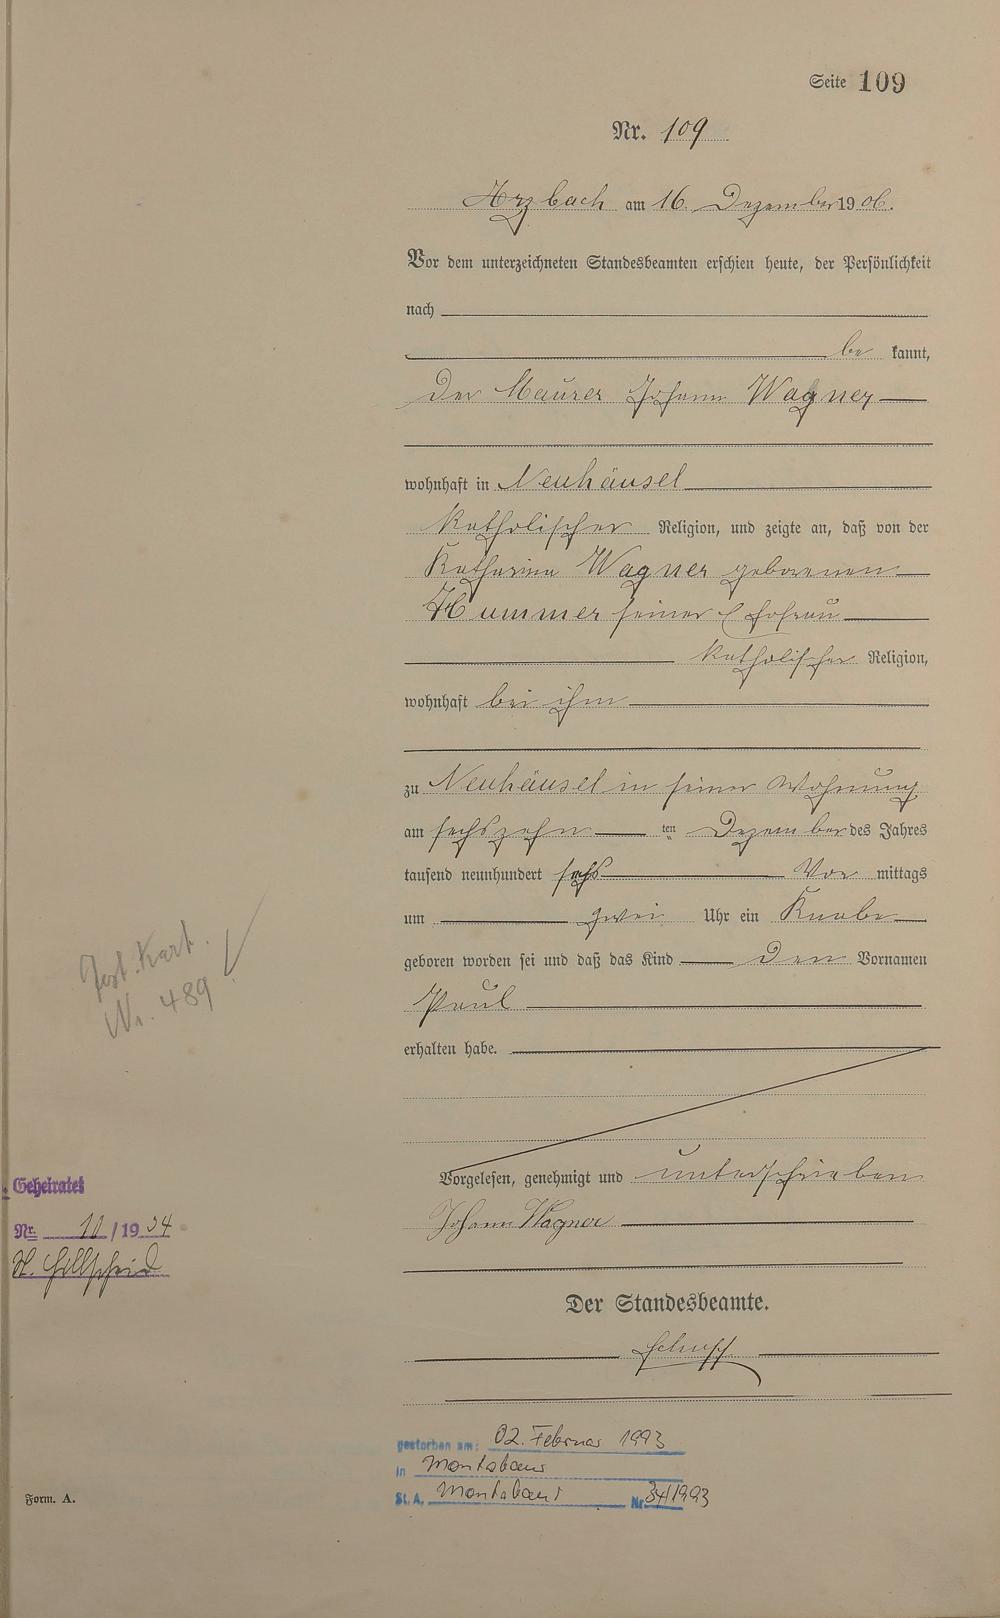 Seite 109
Nr. 109
Arzbach am 16. Dezember 1906.
Vor dem unterzeichneten Standesbeamten erschien heute, der Persönlichkeit
nach
be kannt,
der Maurer Johann Wagner
wohnhaft in Neuhäusel
katholischer Religion, und zeigte an, daß von der
Katharina Wagner geborenen
Hummer seiner Ehefrau
katholischer Religion,
wohnhaft bei ihm
zu Neuhäusel in seiner Wohnung
am sechszehn ten Dezember des Jahres
tausend neunhundert sechs Vor mittags
um zwei Uhr ein Knabe
geboren worden sei und daß das Kind den Vornamen
Paul
erhalten habe.
Vorgelesen, genehmigt und unterschrieben
Johann Wagner
Der Standesbeamte.
Nr. 489
Geheiratet
Nr. 10/1934
St. Hillscheid
gestorben am: 02. Februar 1993
in Montabaur
St. A. Montabaur Nr. 34/1993
Form. A.